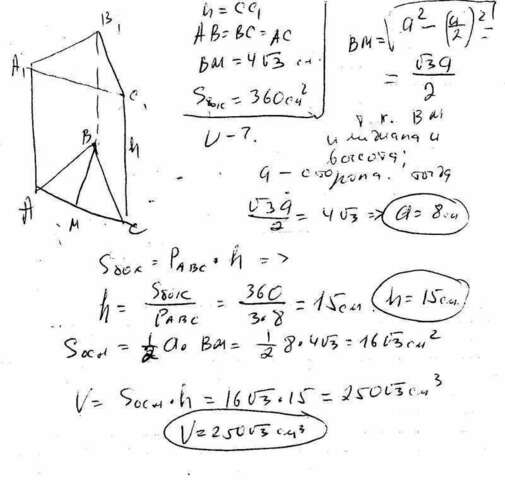 B₁
A₁
C₁
B
h
A
M
C
h = CC₁
AB=BC=AC
BM=4√3 см
Sбок = 360см²
V-?.
BM=√(a²-(a/2)²) =
= √3a/2
т.к. BM
и медиана и
высота;
a - сторона. тогда
√3a/2 = 4√3 => a=8см
Sбок = P_ABC · h =>
h = Sбок/P_ABC = 360/3·8 = 15см. h=15см
Sосн = 1/2 a · BM = 1/2 8·4√3 = 16√3 см²
V = Sосн·h = 16√3·15 = 250√3 см³
V=250√3 см³